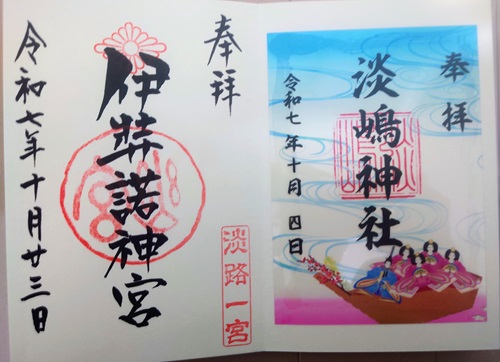 奉拝
淡嶋神社
令和七年十月四日
奉拝
伊弉諾神宮
淡路一宮
令和七年十月廿三日